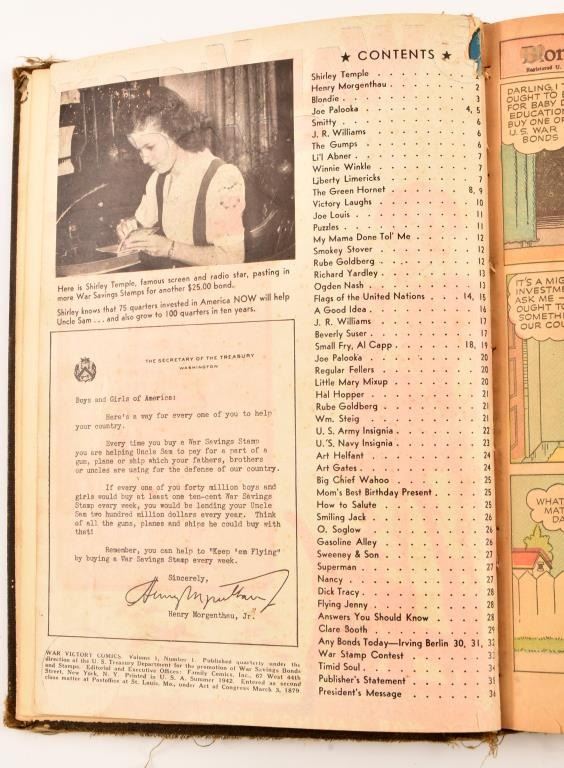 Here is Shirley Temple, famous screen and radio star, pasting in
more War Savings Stamps for another $25.00 bond.
Shirley knows that 75 quarters invested in America NOW will help
Uncle Sam . . . and also grow to 100 quarters in ten years.
THE SECRETARY OF THE TREASURY
WASHINGTON
Boys and Girls of America:
Here's a way for every one of you to help
your country.
Every time you buy a War Savings Stamp
you are helping Uncle Sam to pay for a part of a
gun, plane or ship which your fathers, brothers
or uncles are using for the defense of our country.
If every one of you forty million boys and
girls would buy at least one ten-cent War Savings
Stamp every week, you would be lending your Uncle
Sam two hundred million dollars every year. Think
of all the guns, planes and ships he could buy with
that!
Remember, you can help to "Keep 'em Flying"
by buying a War Savings Stamp every week.
Sincerely,
Henry Morgenthau Jr
Henry Morgenthau, Jr.
WAR VICTORY COMICS. Volume 1, Number 1. Published quarterly under the
direction of the U. S. Treasury Department for the promotion of War Savings Bonds
and Stamps. Editorial and Executive Offices: Family Comics, Inc., 67 West 44th
Street, New York, N. Y. Printed in U. S. A. Summer 1942. Entered as second
class matter at Postoffice at St. Louis, Mo., under Act of Congress March 3, 1879.
★ CONTENTS ★
Shirley Temple
Henry Morgenthau 2
Blondie 3
Joe Palooka 4, 5
Smitty 6
J. R. Williams 6
The Gumps 6
Li'l Abner 7
Winnie Winkle 7
Liberty Limericks 7
The Green Hornet 8, 9
Victory Laughs 10
Joe Louis 11
Puzzles 11
My Mama Done Tol' Me 12
Smokey Stover 12
Rube Goldberg 12
Richard Yardley 13
Ogden Nash 13
Flags of the United Nations 14, 15
A Good Idea 16
J. R. Williams 17
Beverly Suser 17
Small Fry, Al Capp 18, 19
Joe Palooka 20
Regular Fellers 20
Little Mary Mixup 20
Hal Hopper 21
Rube Goldberg 21
Wm. Steig 21
U. S. Army Insignia 22
U. S. Navy Insignia 23
Art Helfant 24
Art Gates 24
Big Chief Wahoo 25
Mom's Best Birthday Present 25
How to Salute 25
Smiling Jack 26
O. Soglow 26
Gasoline Alley 26
Sweeney & Son 27
Superman 27
Nancy 27
Dick Tracy 28
Flying Jenny 28
Answers You Should Know 28
Clare Booth 29
Any Bonds Today—Irving Berlin 30, 31, 32
War Stamp Contest 33
Timid Soul 34
Publisher's Statement 35
President's Message 36
Registered U.
DARLING, I
OUGHT TO B
FOR BABY D
EDUCATION
BUY ONE OF
U.S. WAR
BONDS
IT'S A MIG
INVESTMEN
ASK ME—
OUGHT TO
SOMETHIN
OUR COU
WHAT
MAT
DA